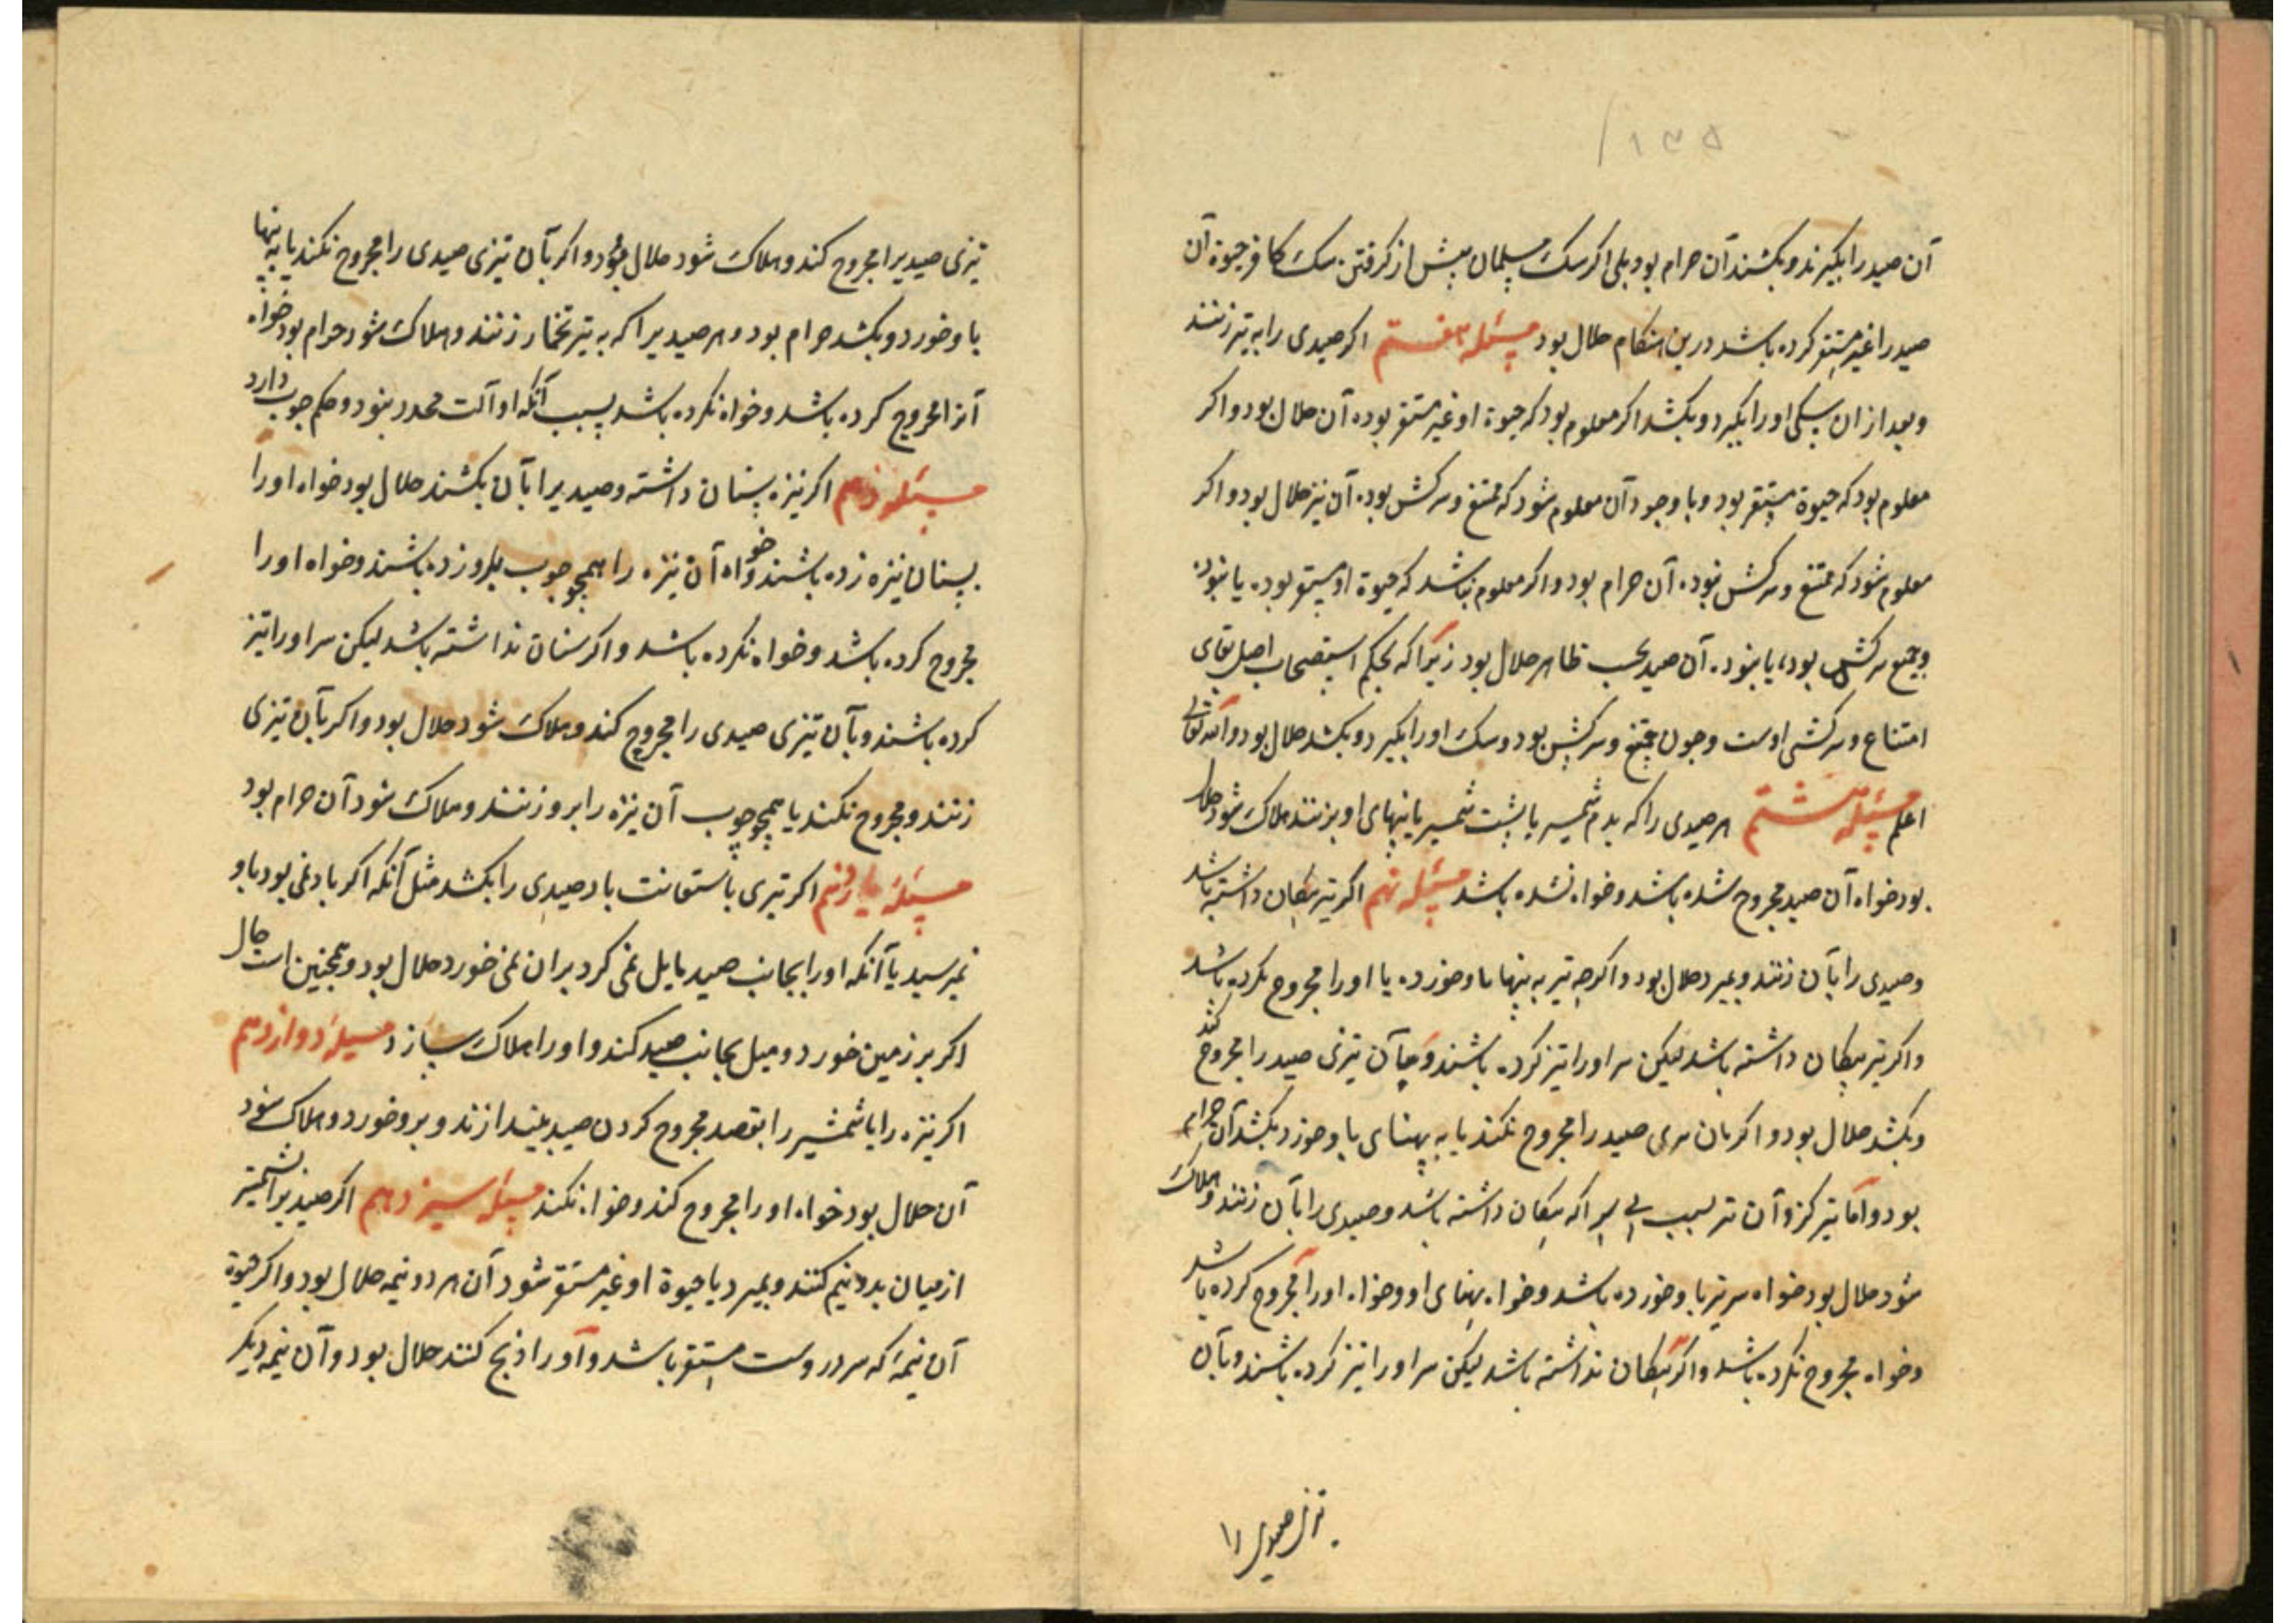 ۱۳۵
آن صید را بگیرند و بکشند آن حرام بود بلی اگر سک مسلمان پیش از کرفتن سک کافر حیوة آن
صید را غیر مستقر کرده باشد درین هنکام حلال بود مسئله هفتم اکر صیدی را به تیر زنند
و بعد از ان سکی او را بکیرد و بکشد اکر معلوم بود که حیوة او غیر مستقر بوده آن حلال بود و اکر
معلوم بود که حیوة مستقر بود و با وجود آن معلوم شود که ممتنع و سرکش بوده آن نیز حلال بود و اکر
معلوم شود که ممتنع و سرکش نبوده آن حرام بود و اکر معلوم نباشد که حیوة او مستقر بوده یا نبوده
و سرکش بوده یا نبوده آن صید بحسب ظاهر حلال بود زیرا که بحکم استصحاب اصل بقای
امتناع و سرکشی اوست و چون ممتنع و سرکش بود و سک او را بکیرد و بکشد حلال بود والله تعالی
اعلم مسئله هشتم هر صیدی را که بدم شمشیر یا پشت شمشیر یا پنهای او بزنند هلاک شود حلال
بود خواه آن صید مجروح شده باشد و خواه نشده باشد مسئله نهم اکر تیر پیکان داشته باشد
و صیدی را بآن زنند و بمیرد حلال بود و اکرچه تیر به پنها باو خورده یا او را مجروح نکرده باشد
و اکر تیر پیکان داشته باشد لیکن سر او را تیز کرده باشند و بآن تیزی صید را مجروح کند
و بکشد حلال بود و اکر بان تیزی صید را مجروح نکند یا به پهنای باو خورد بکشد آن حرام
بود و اما تیر کز و آن تیر که پیکان داشته باشد و صیدی را بآن زنند و هلاک
شود حلال بود خواه سر تیر باو خورده باشد و خواه پهنای او و خواه او را مجروح کرده باشد
و خواه مجروح نکرده باشد و اکر پیکان نداشته باشد لیکن سر او را تیز کرده باشند و بآن
تیزی صیدی را
تیزی صیدیرا مجروح کند و هلاک شود حلال بود و اکر بآن تیزی صیدی را مجروح نکند یا به پنها
باو خورد و بکشد حرام بود و هر صیدیرا که به تیر تخمار زنند و هلاک شود حرام بود خواه
آنرا مجروح کرده باشد و خواه نکرده باشد بسبب آنکه او آلت محدد نبود و حکم چوب دارد
مسئله دهم اکر نیزه سنان داشته و صیدیرا بآن بکشند حلال بود خواه او را
بسنان نیزه زده باشند و خواه آن نیزه را همچو چوب برو زده باشند و خواه او را
مجروح کرده باشد و خواه نکرده باشد و اکر سنان نداشته باشد لیکن سر او را تیز
کرده باشند و بآن تیزی صیدی را مجروح کند و هلاک شود حلال بود و اکر بآن تیزی
زنند و مجروح نکند یا همچو چوب آن نیزه را برو زنند و هلاک شود آن حرام بود
مسئله یازدهم اکر تیری باستعانت باد صیدی را بکشد مثل آنکه اکر باد نمی بود باو
نمیرسید یا آنکه او را بجانب صید مایل نمی کرد بران نمی خورد حلال بود و همچنین است حال
اکر بر زمین خورد و میل بجانب صید کند و او را هلاک سازد مسئله دوازدهم
اکر نیزه را یا شمشیر را بقصد مجروح کردن صید بیندازند و برو خورد و هلاک شود
آن حلال بود خواه او را مجروح کند و خواه نکند مسئله سیزدهم اکر صیدیرا بشمشیر
از میان بدو نیم کنند و بمیرد یا حیوة او غیر مستقر شود آن هر دو نیمه حلال بود و اکر حیوة
آن نیمه که سر دروست مستقر باشد و او را ذبح کنند حلال بود و آن نیمه دیکر